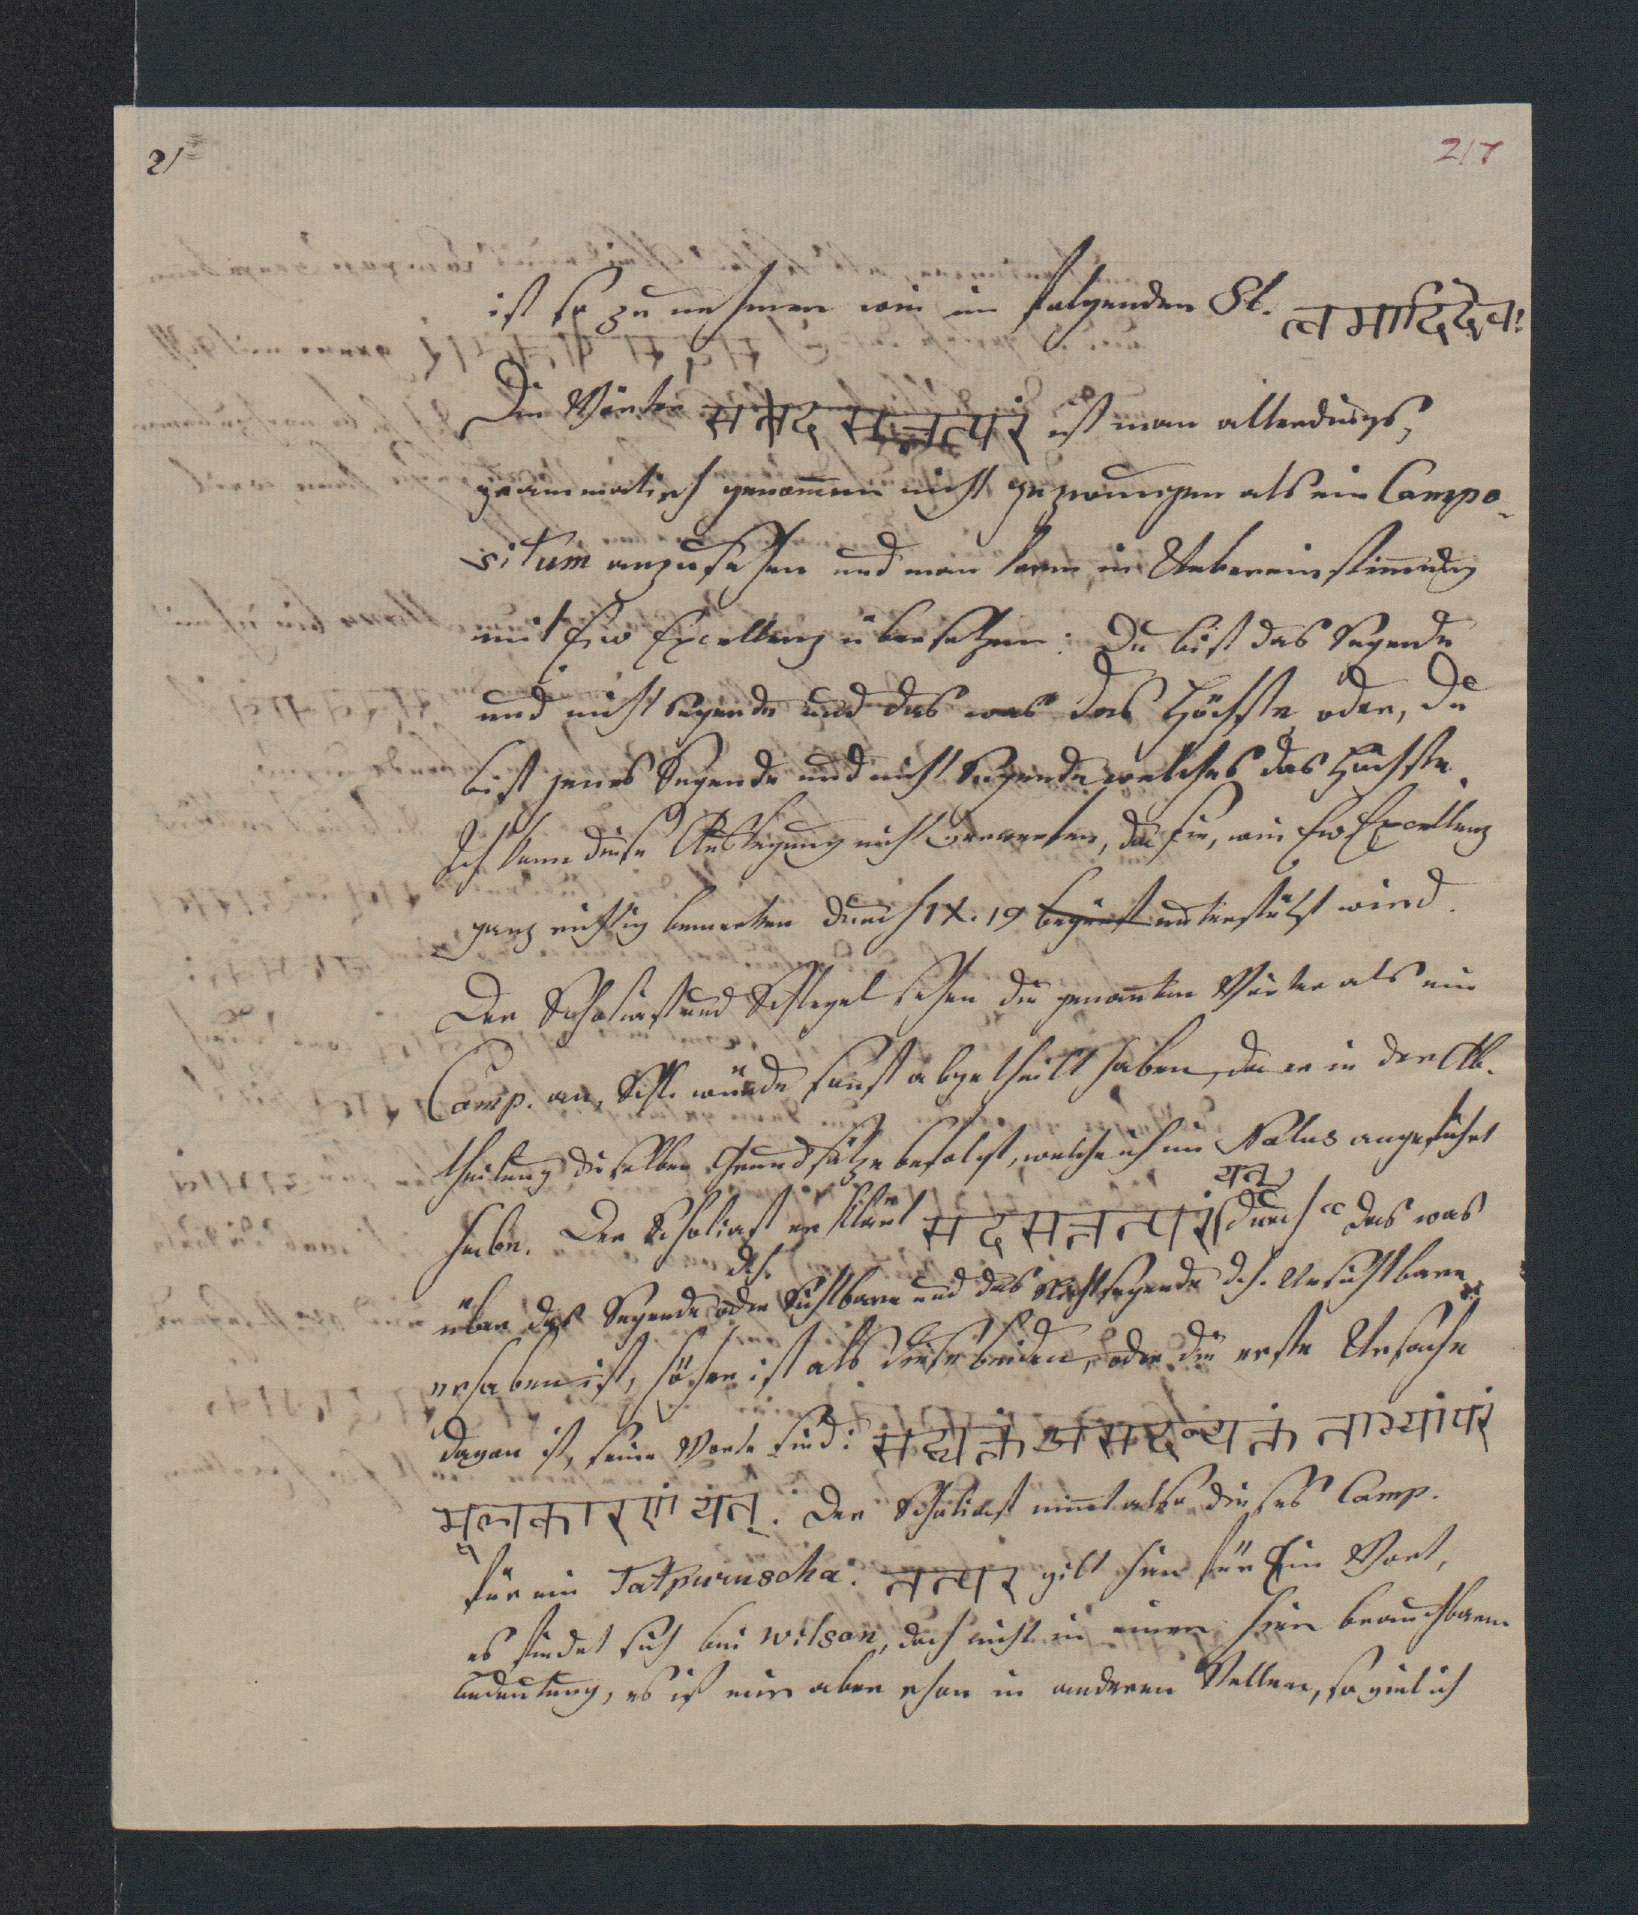 2/
217
ist so zu nehmen wie im folgenden Sl. त्वमादिदेवः
Die Wörter सदसत्तत्परं ist man allerdings,
grammatisch genommen nicht gezwungen als ein Compo-
situm anzusehen und man kann in Uebereinstimmung
mit Ew Excellenz übersetzen: Du bist das Seyende
und nicht seyende und das was das Höchste oder, Du
bist jenes Seyende und nicht Seyende welches das Höchste.
Ich kann diese Auslegung nicht verwerfen, da sie, wie Ew Excellenz
ganz richtig bemerken durch IX. 19 unterstützt wird.
Der Scholiast und Schlegel sehen die genannten Wörter als ein
Comp. an, Schl. würde sonst abgetheilt haben, da er in der Ab-
theilung dieselben Grundsätze befolgt, welche ich im Nalus angeführt
habe. Der Scholiast erklärt सदसत्तत्परं यत् durch „das was
über das Seyende d.h. Sichtbare und das Nichtseyende d.h. Unsichtbare
erhaben ist, höher ist als diese beiden, oder die erste Ursache
davon ist, seine Worte sind: सद्व्यक्तं असदव्यक्तं ताभ्यां परं
मूलकारणं यत्. Der Scholiast nimmt also dieses Comp.
für ein Tatpuruscha. तत्पर gilt hier für Ein Wort,
es findet sich bei Wilson, doch nicht in einer hier brauchbaren
Bedeutung, es ist mir aber schon in anderen Stellen, so viel ich